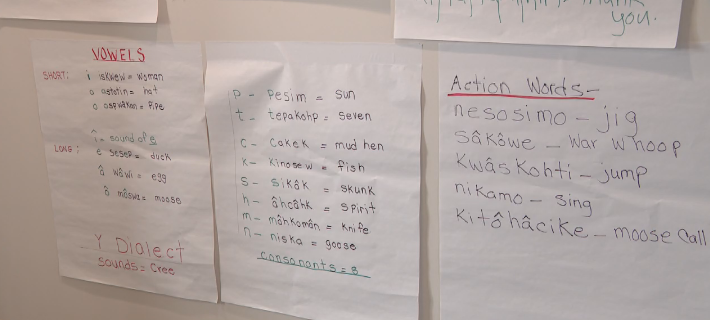 you.
VOWELS
SHORT: i iskwew = woman
a astotin = hat
o ospwakan = Pipe
î = sound of e
LONG: e sesep = duck
â wâwi = egg
ô môswa = moose
Y Dialect
sounds = Cree
P - Pesim = sun
t - tepakohp = seven
c - cakek = mud hen
k - kinosew = fish
s - sikâk = skunk
h - âhcâhk = spirit
m - môhkomân = knife
n - niska = goose
consonants = 8
Action Words -
nesosimo - jig
sâkôwe - war whoop
kwâskohti - jump
nikamo - sing
kitôhâcike - moose call